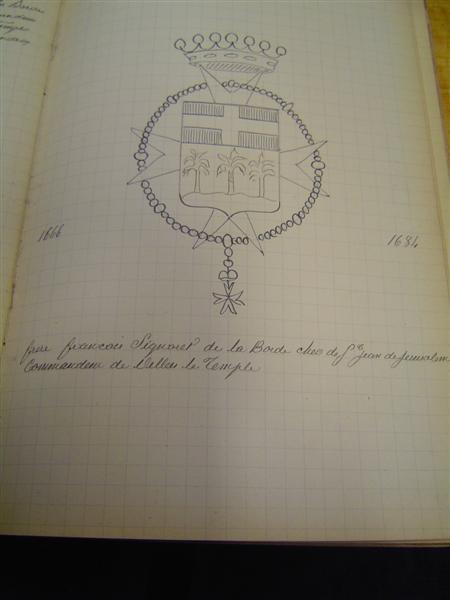 1666
1684
frere francois Signoret de la Borde chev de St Jean de Jerusalem
Commandeur de Villers le Temple